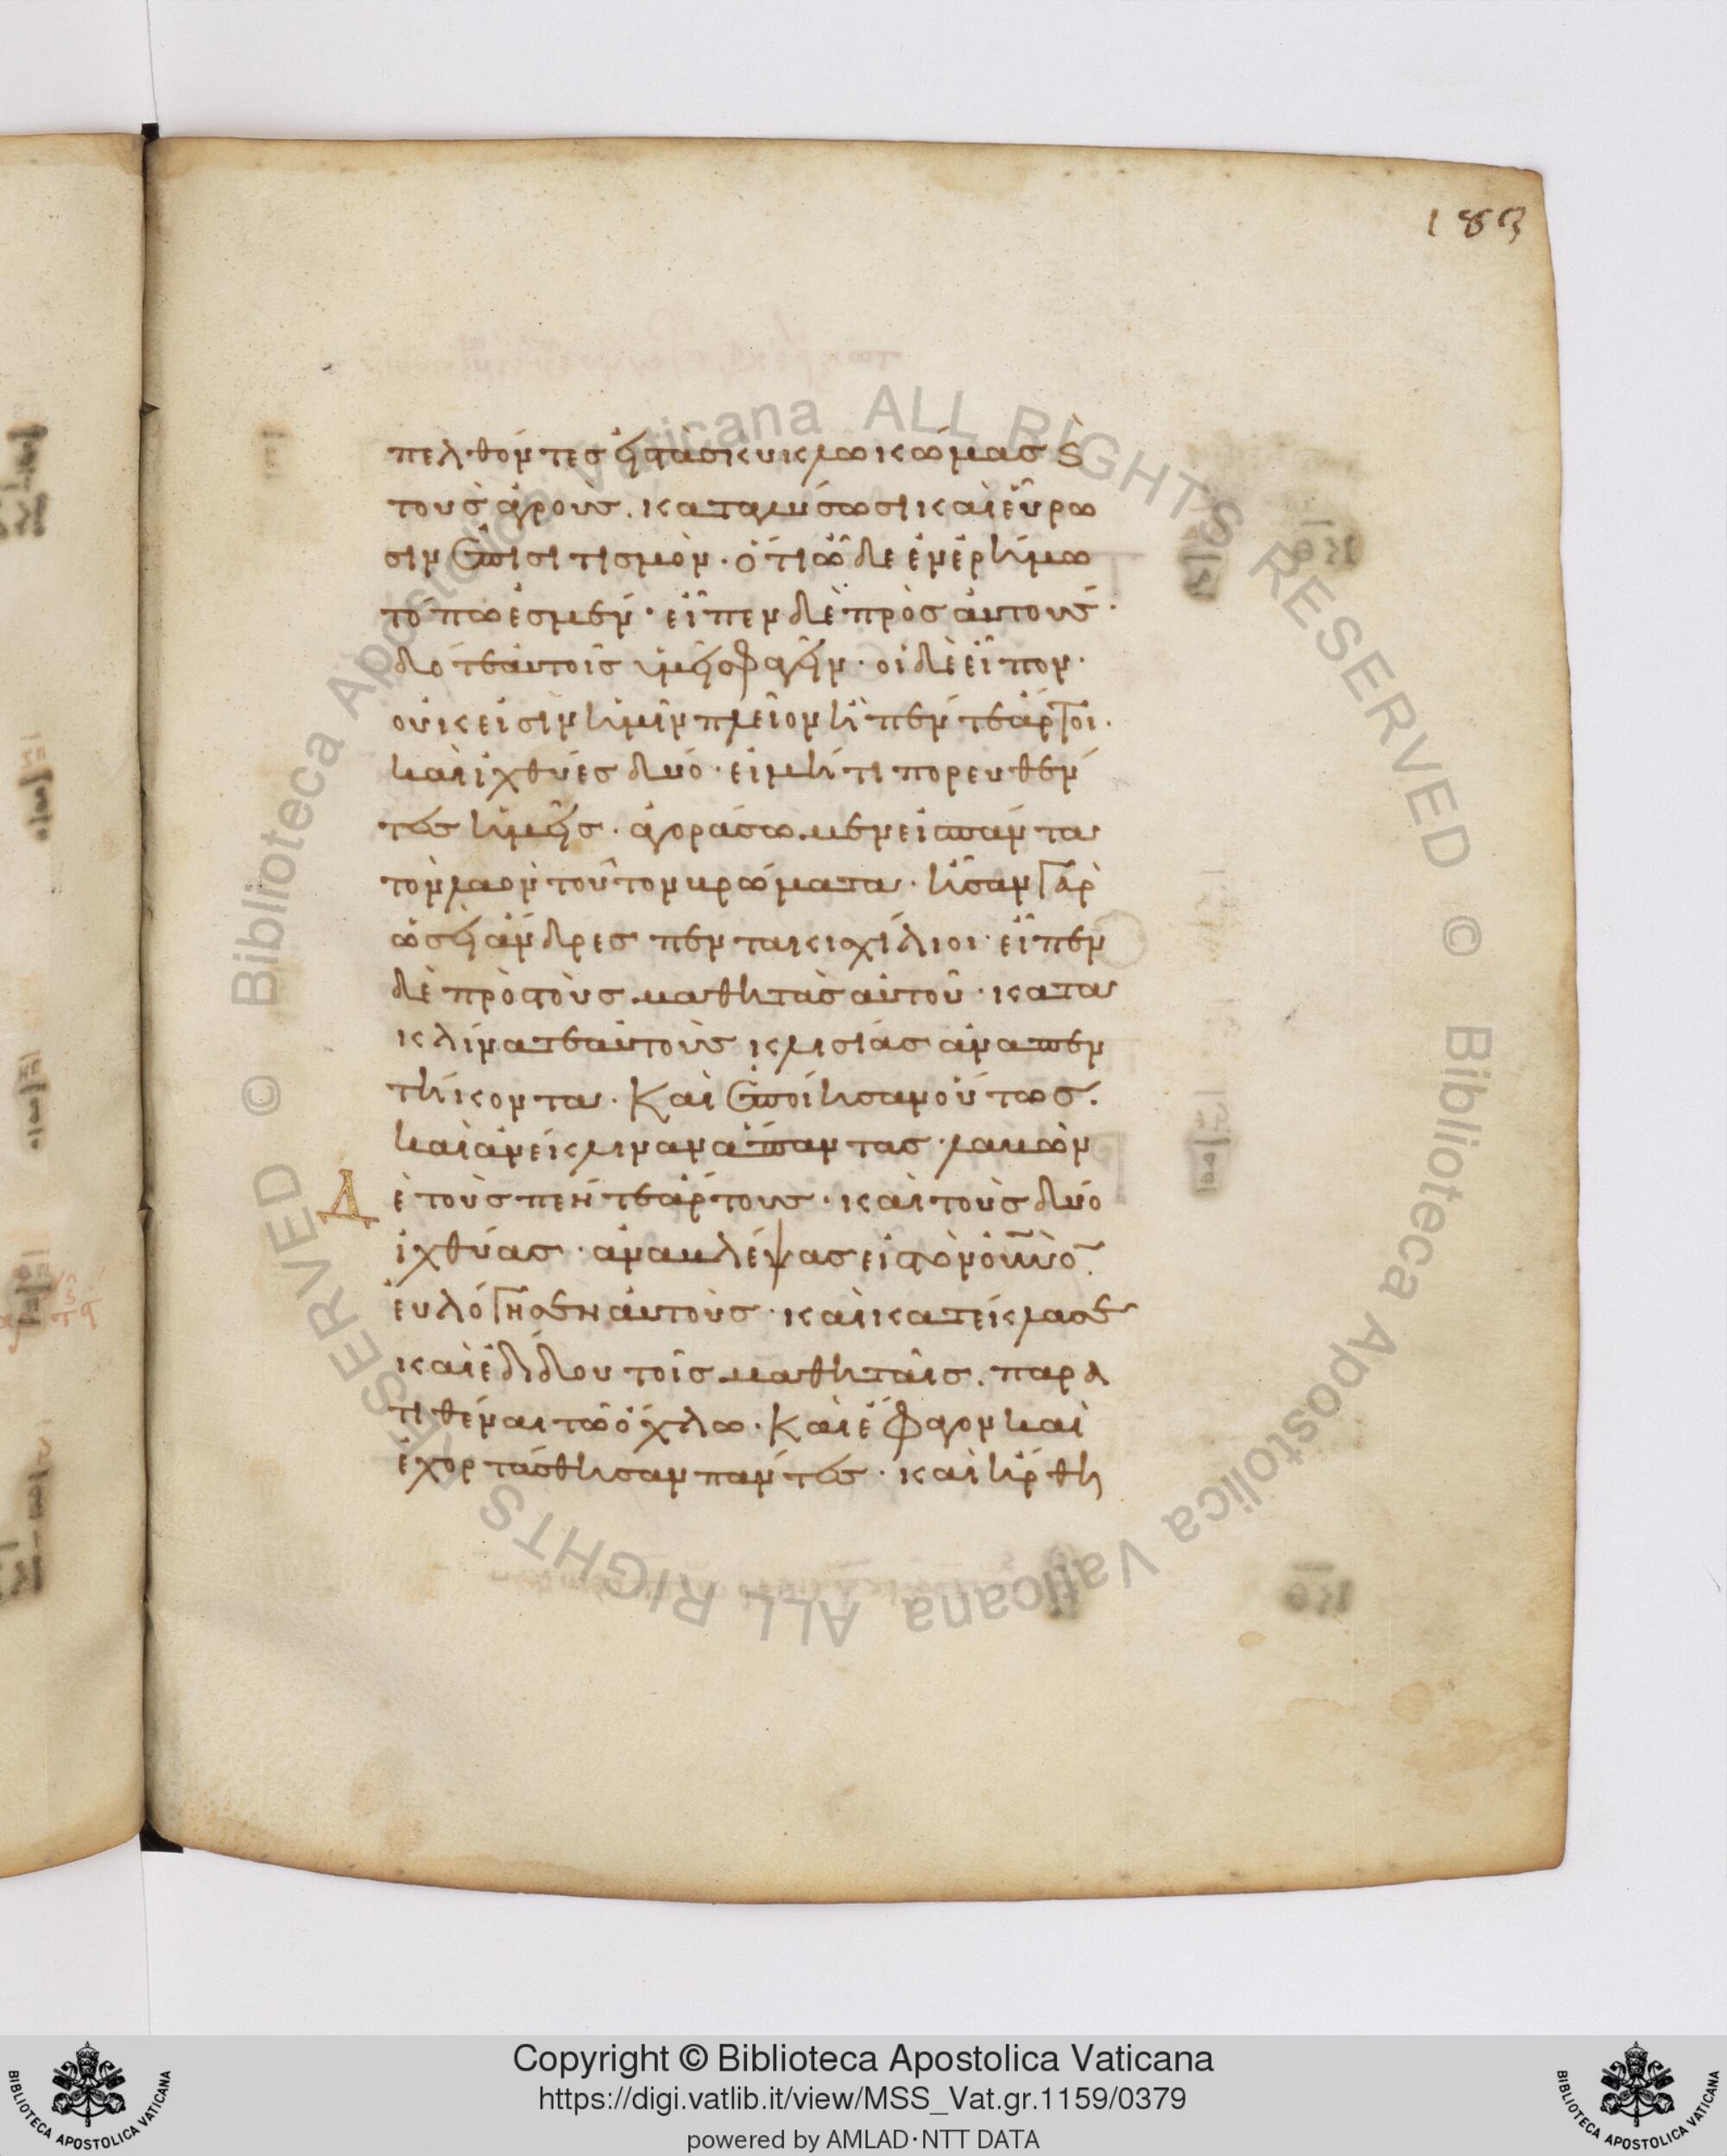 183
πελθόντες εἰς τὰς κύκλω κώμας ϗ
τοὺς ἀγροὺς. καταλύσωσι καὶ εὕρω
σιν ἐπισιτισμὸν· ὅτι ὧδε ἐν ἐρήμω
τόπω ἐσμέν· εἶπεν δὲ πρὸς αὐτούς·
δότε αὐτοῖς ὑμεῖς φαγεῖν· οἱ δὲ εἶπον·
οὐκ εἰσὶν ἡμῖν πλεῖον ἢ πέντε ἄρτοι·
καὶ ἰχθύες δύο· εἰ μή τι πορευθέν
τες ἡμεῖς· ἀγοράσωμεν εἰς πάντα
τὸν λαὸν τοῦτον βρώματα· ἦσαν γὰρ
ὡσεὶ ἄνδρες πεντακισχίλιοι· εἶπεν
δὲ πρὸς τοὺς μαθητὰς αὐτοῦ· κατα
κλίνατε αὐτοὺς κλισίας ἀνὰ πεν
τήκοντα· Καὶ ἐποίησαν οὕτως·
καὶ ἀνέκλιναν ἅπαντας· λαβὼν
Δ ὲ τοὺς πέντε ἄρτους· καὶ τοὺς δύο
ἰχθύας· ἀναβλέψας εἰς τὸν οὐνὸν·
εὐλόγησεν αὐτοὺς· καὶ κατέκλασε
καὶ ἐδίδου τοῖς μαθηταῖς. παρα
τιθέναι τῶ ὄχλω· Καὶ ἔφαγον καὶ
ἐχορτάσθησαν πάντες· καὶ ἤρθη
Copyright © Biblioteca Apostolica Vaticana
https://digi.vatlib.it/view/MSS_Vat.gr.1159/0379
powered by AMLAD·NTT DATA
BIBLIOTECA APOSTOLICA VATICANA
BIBLIOTECA APOSTOLICA VATICANA
© Biblioteca Apostolica Vaticana ALL RIGHTS RESERVED
© Biblioteca Apostolica Vaticana ALL RIGHTS RESERVED